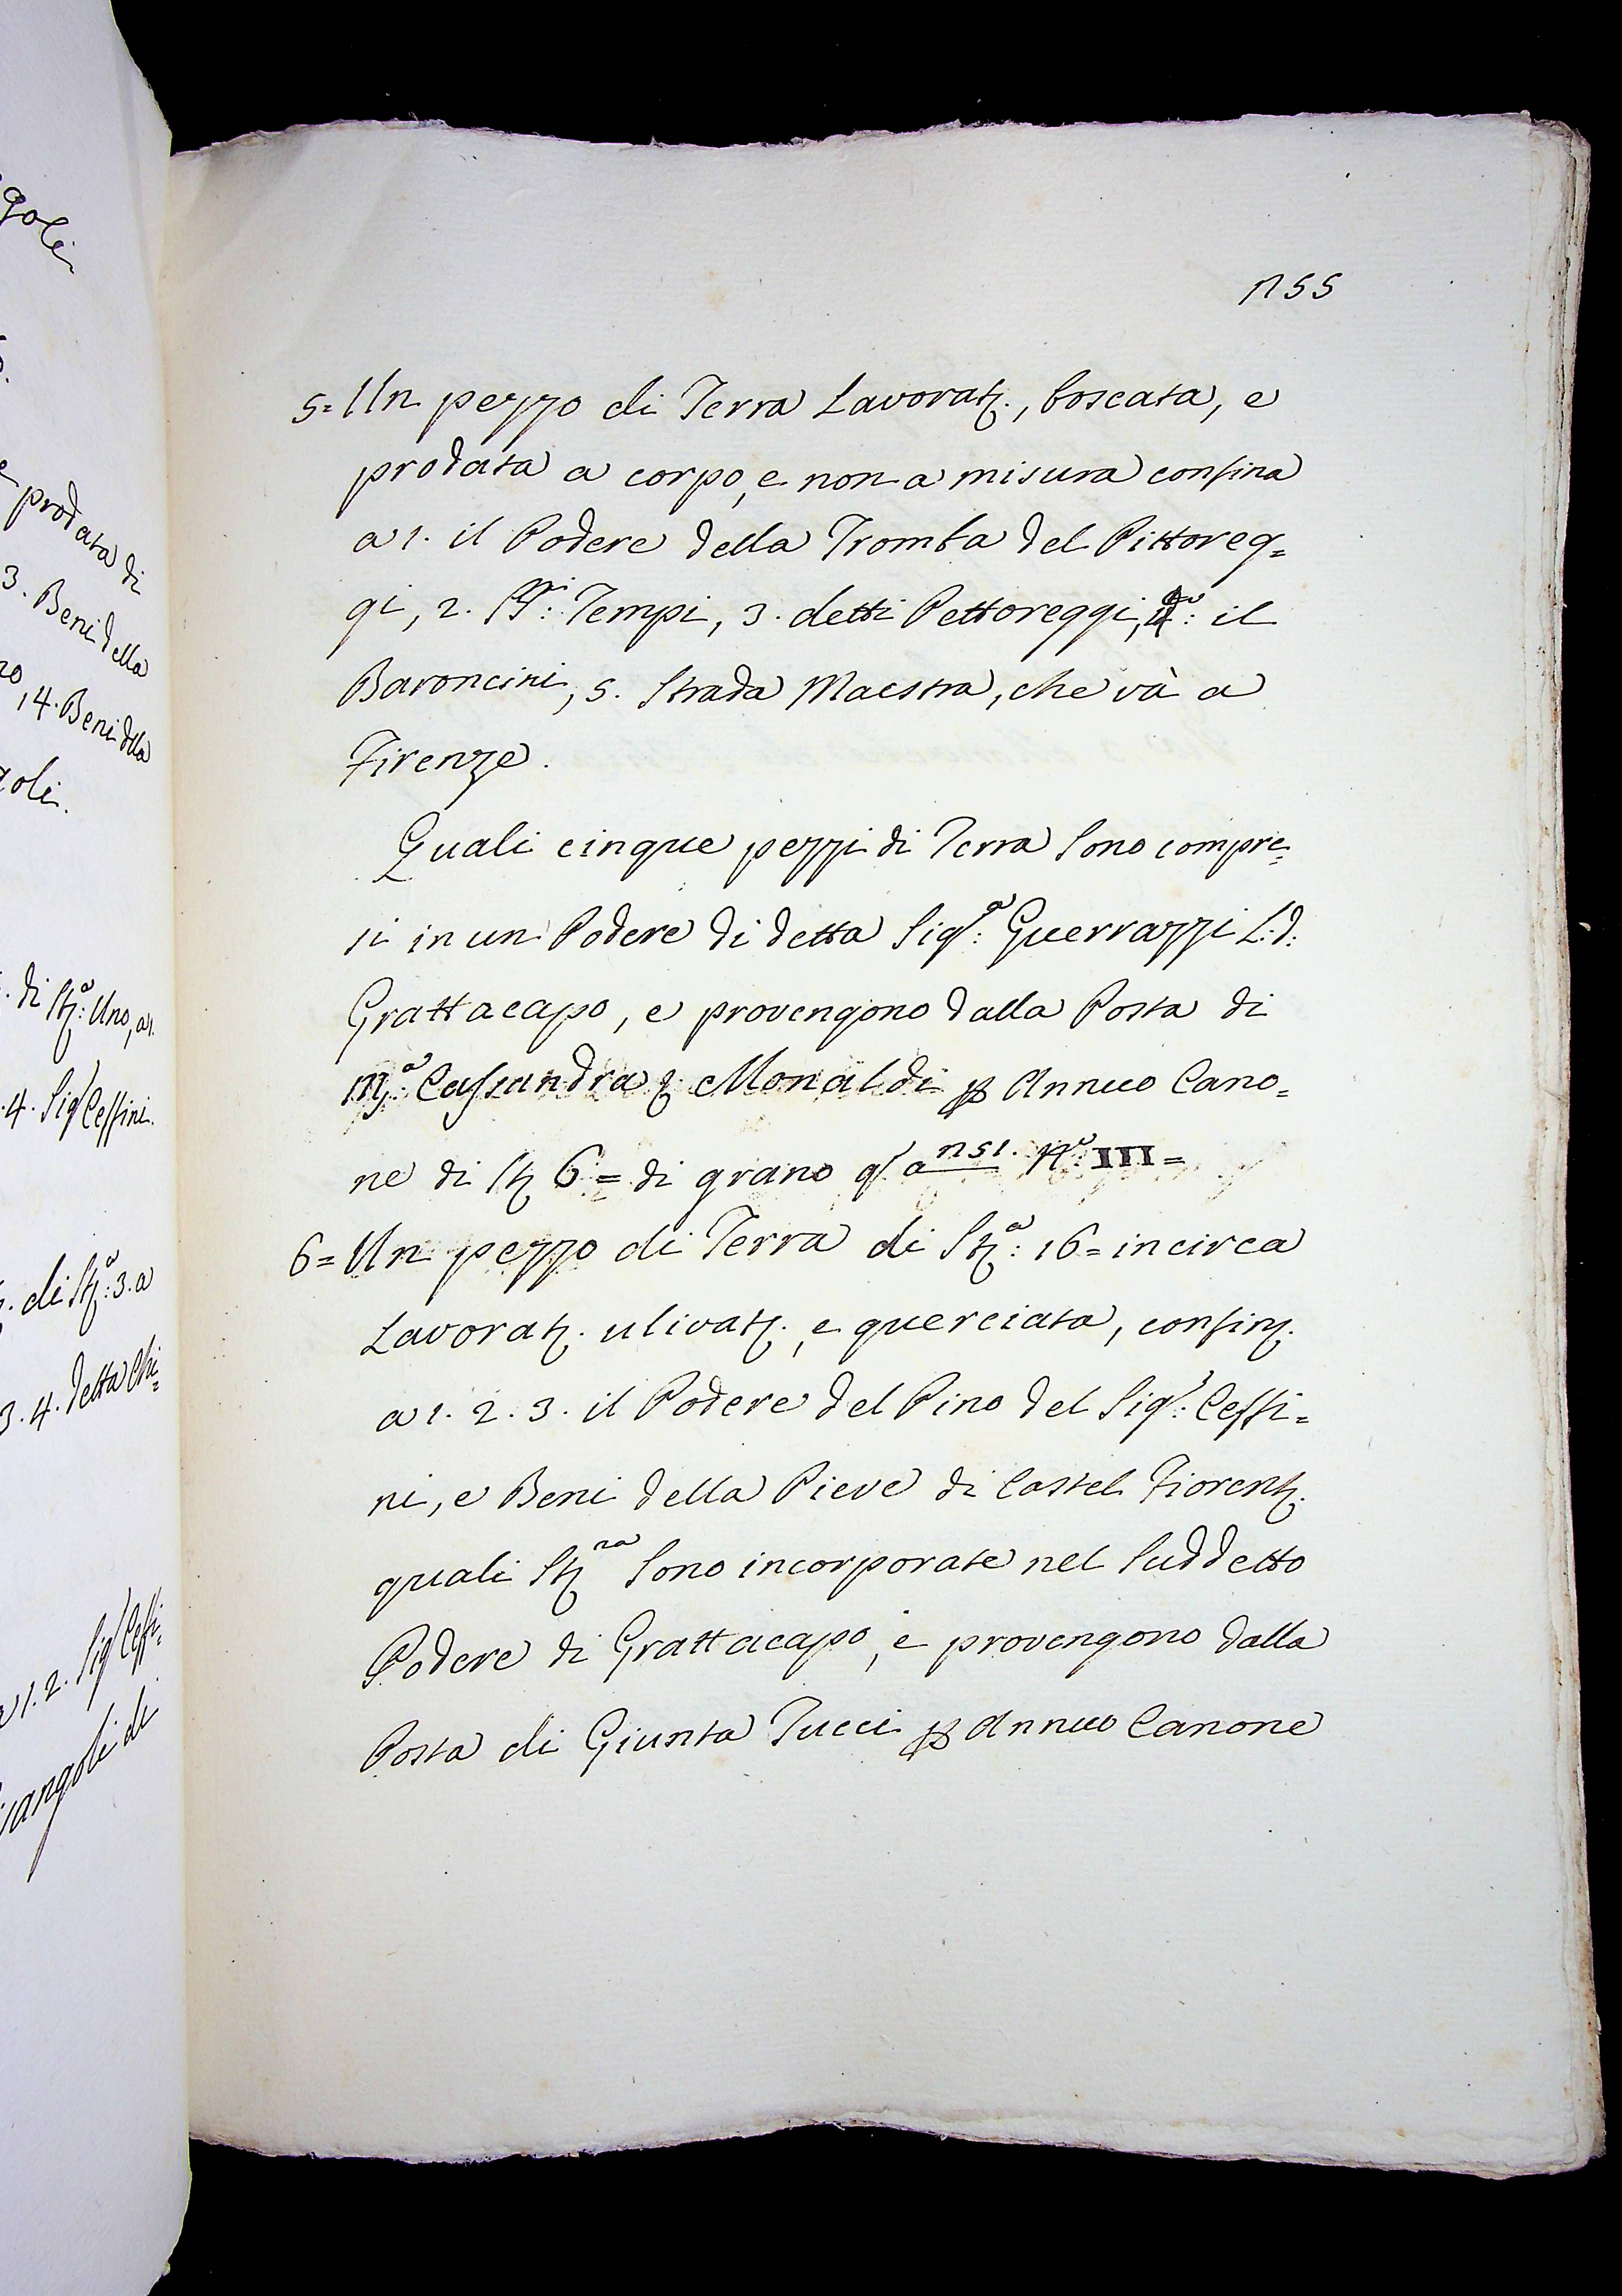 goli
prodata di
3. Beni della
, 4. Beni della
goli.
di St.ª: Uno, a 1.
4. Sig.r Ceffini.
di St.ª: 3. a
3. 4. detta Chi=
a 1. 2. Sig.r Ceffi=
sangoli di
n 55
5= Un pezzo di Terra Lavorat., boscata, e
prodata a corpo, e non a misura confina
a 1. il Podere della Tromba del Pittoreg=
gi, 2. SS.ri: Tempi, 3. detti Pettoreggi, 4.º: il
Baroncini, 5. Strada Maestra, che và a
Firenze.
Quali cinque pezzi di Terra sono compre=
si in un Podere di detta Sig.ra: Guerrazzi L: d:
Grattacapo, e provengono dalla Posta di
M.ª: Cassandra Monaldi p Annuo Cano=
ne di St 6= di grano q a n 51. N.º: III=
6= Un pezzo di Terra di St.ª: 16= incirca
Lavorat. ulivat., e querciata, confin.
a 1. 2. 3. il Podere del Pino del Sig.r: Ceffi=
ni, e Beni della Pieve di Castel Fiorent.
quali St.ra sono incorporate nel Suddetto
Podere di Grattacapo, e provengono dalla
Posta di Giunta Tucci p Annuo Canone